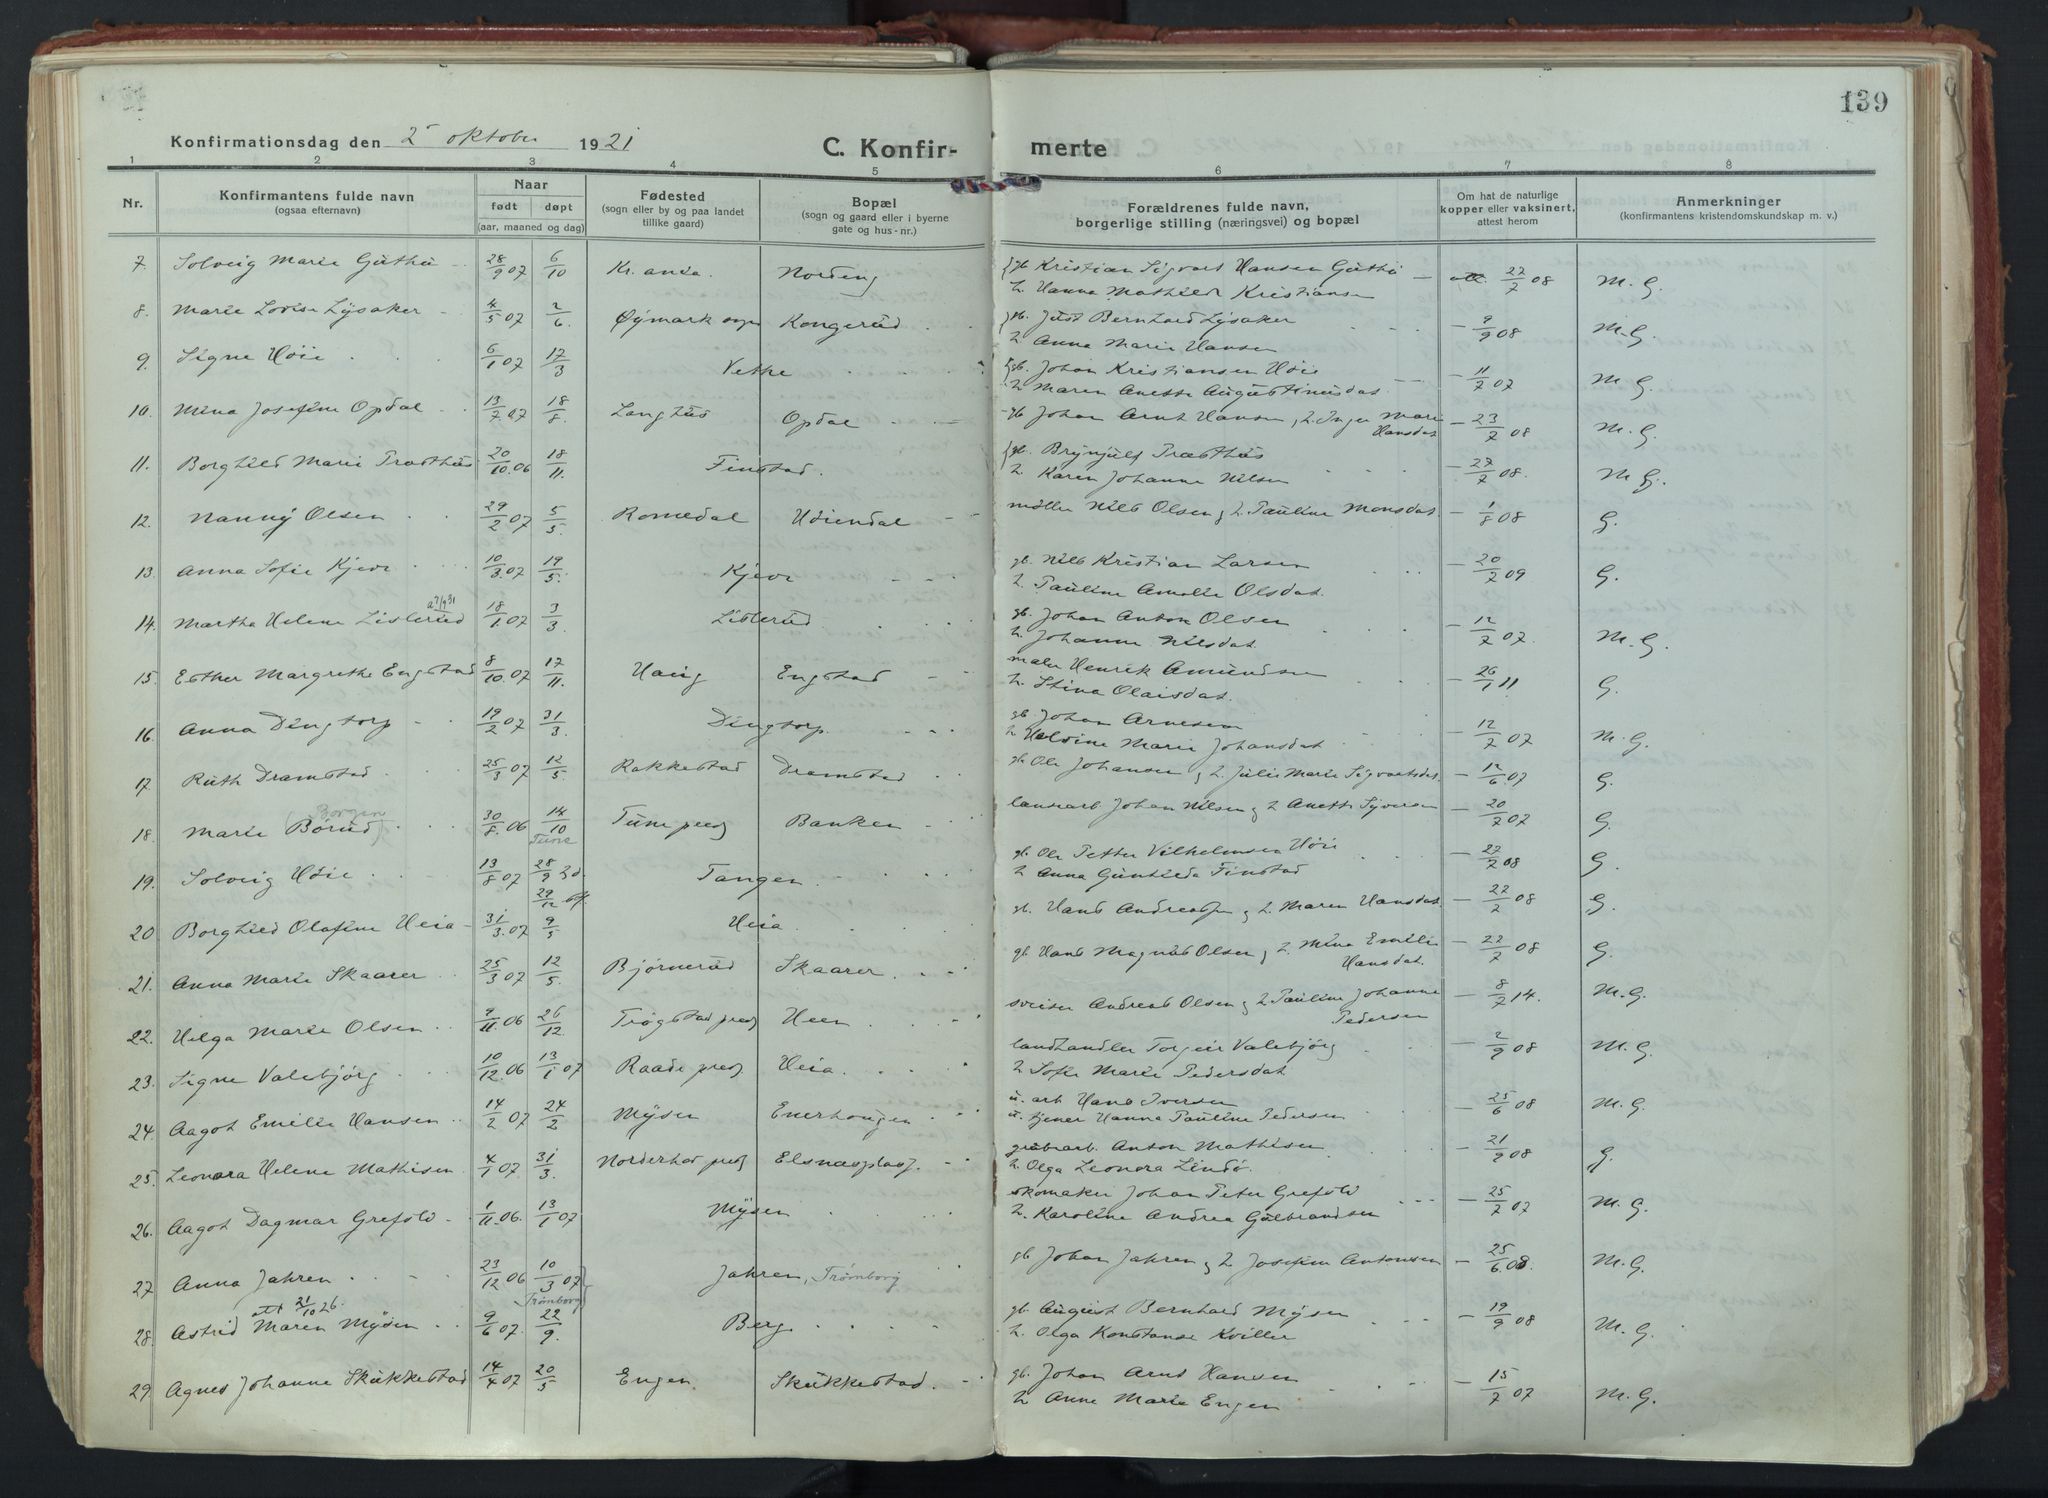 139
Konfirmationsdag den 2 oktober 1921
C. Konfir- merte
1 2 3 4 5 6 7 8
Nr.
Konfirmantens fulde navn
(ogsaa efternavn)
Naar
født døpt
(aar, maaned og dag)
Fødested
(sogn eller by og paa landet
tillike gaard)
Bopæl
(sogn og gaard eller i byerne
gate og hus-nr.)
Forældrenes fulde navn,
borgerlige stilling (næringsvei) og bopæl
Om hat de naturlige
kopper eller vaksinert,
attest herom
Anmerkninger
(konfirmantens kristendomskundskap m. v.)
7. Solveig Marie Guthu 28/9 07 6/10 Kr.ania Nordeng gb Kristian Sigvart Hansen Guthu 22/7 08 M.G.
h. Hanna Mathilde Kristiansen
8. Marie Lovise Lysaker 4/5 07 2/6 Øymark sogn Kongerud gb. Just Bernhard Lysaker 9/9 08 M.G.
h. Anna Marie Hansen
9. Signe Høie 6/1 07 17/3 Vethe gb. Johan Kristiansen Høie 11/7 07 M G.
h. Maren Anette Augustinusdat.
10. Mina Josefine Opdal 13/7 07 18/8 Langhus Opdal gb Johan Arnt Hansen, h. Inger Marie 23/7 08 M.G.
Hansdat
11. Borghild Marie Træthus 20/10 06 18/11 Finstad. gb. Brynjulf Træthus 27/7 08. M G.
h. Karen Johanne Nilsen
12. Nanny Olsen 29/2 07 5/5 Romedal Høiendal møller Nils Olsen og h. Pauline Monsdat. 1/8 08 G.
13. Anna Sofie Kjeve 10/3 07 19/5 Kjeve gb. Nils Kristian Larsen 20/7 09 G.
h. Pauline Amalie Olsdat.
14. Martha Helene Lislerud 18/1 07 3/3 Lislerud gb. Johan Anton Olsen 12/7 07. M.G.
h. Johanne Nilsdat.
15. Esther Margrethe Engstad 8/10 07 17/11 Haug Engstad maler Henrik Amundsen 26/1 11 G.
h. Stina Olaisdat.
16. Anna Dingtorp 19/2 07 31/3 Dingtorp. gb. Johan Arnesen 12/7 07 M.G.
h. Helvine Marie Johansdat
17. Ruth Dramstad 25/3 07 12/5 Rakkestad Dramstad gb. Ole Johansen og h. Julie Marie Sigvartsdat. 12/6 07 G.
18. Marie Børud (Borgen) 30/8 06 14/10 Tune Tune presg Banken Johan Nilsen og h Anette Syversen 20/7 07 G.
19. Solveig Høie 13/8 07 28/9 29/12 Tangen gb. Ole Petter Vilhelmsen Høie 22/7 08 G.
h Anna Gunhilda Finstad
20 Borghild Olafine Heia 31/3 07 9/5 Heia gb. Hans Andreassen og h. Maren Hansdat. 22/2 08 G.
21. Anna Marie Skaarer 25/3 07 12/5 Bjørnerud Skaarer gb Hans Magnus Olsen og h. Mina Emilie 22/7 08 G.
Hansdat.
22. Helga Marie Olsen 9/11 06 26/12 Trøgstad presg Heen sveiser Andreas Olsen og h Pauline Johanne 8/7 14. M.G.
Pedersen
23. Signe Valebjørg 10/12 06 13/1 07 Raade presg Heia landhandler Torgeir Valebjørg 2/9 08 M.G.
h. Sofie Marie Pedersdat
24. Aagot Emilie Hansen 14/2 07 24/2 Mysen Enerhougen u. arb. Hans Iversen 25/6 08 M.G.
u. tjener Hanna Pauline Pedersen
25. Leonora Helene Mathisen 4/1 07 31/3 Norderhov presg Elsnesplass. grubearb. Anton Mathisen 21/9 08 G.
h. Olga Leonora Lindø.
26. Aagot Dagmar Grefslo 1/11 06. 13/1 07 Mysen skomaker Johan Peter Grefslo 25/7 07 M.G.
h. Karoline Andrea Gulbrandsen
27 Anna Jahren 23/12 06 10/3 07 Trømborg Jahren, Trømborg gb Johan Jahren og h Josefine Antonsen 25/6 08. M.G.
att 21/10 26.
28. Astrid Maren Mysen 9/6 07. 22/9. Berg gb. August Bernhard Mysen 19/9 08 M.G.
h. Olga Konstanse Kviller
29. Agnes Johanne Skukkestad 14/4 07 20/5 Engen. Skukkestad. gb. Johan Arnt Hansen 15/7 07 M.G.
h Anne Marie Engen